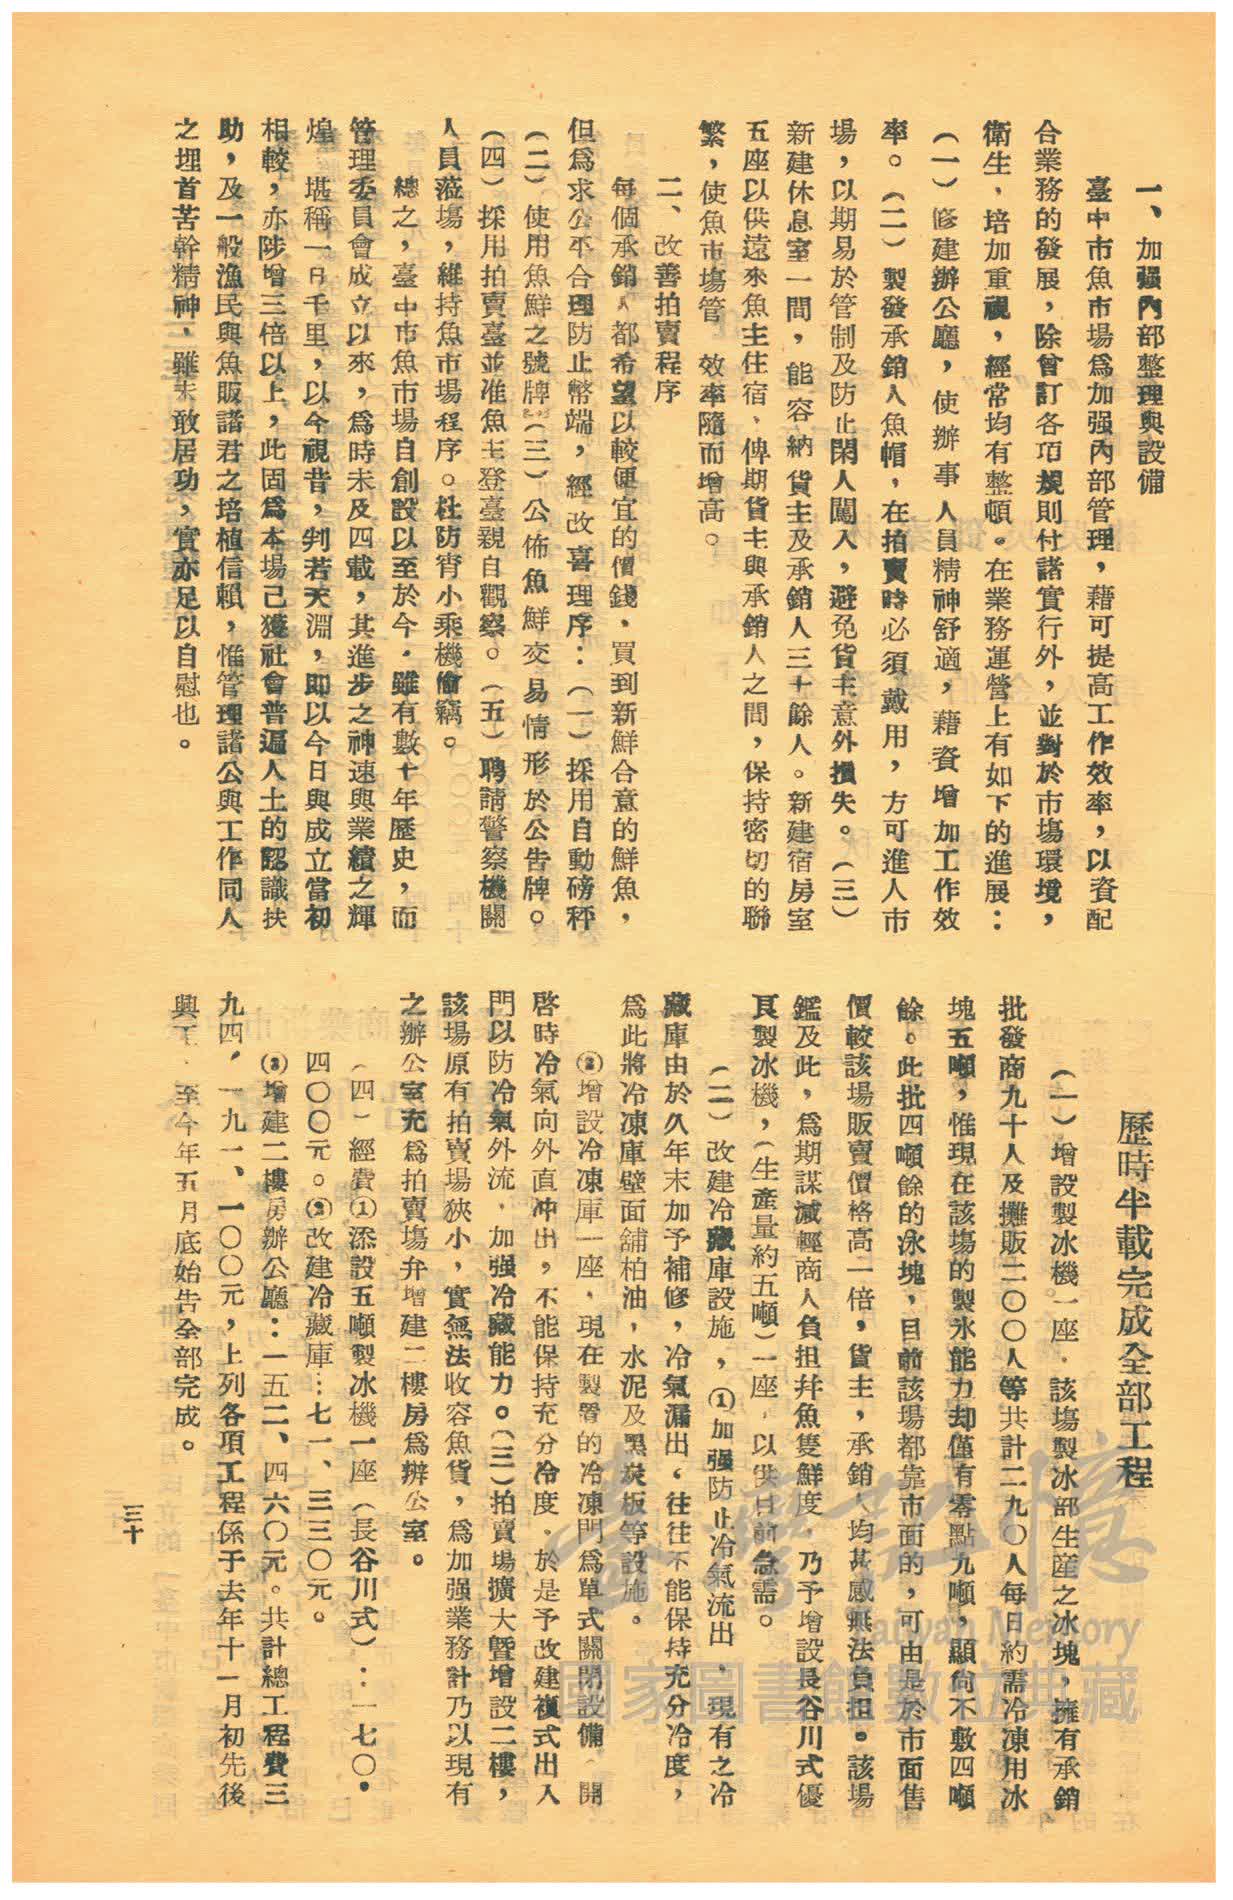 一、加强內部整理與設備
臺中市魚市場爲加强內部管理，藉可提高工作效率，以資配
合業務的發展，除曾訂各項規則付諸實行外，並對於市塲環境，
衛生、培加重視，經常均有整頓。在業務運營上有如下的進展：
（一）修建辦公廳，使辦事人員精神舒適，藉資增加工作效
率。（二）製發承銷人魚帽，在拍賣時必須戴用，方可進人市
場，以期易於管制及防止閑人闖人，避免貨主意外損失。（三）
新建休息室一間，能容納貨主及承銷人三十餘人。新建宿房室
五座以供遠來魚主住宿、俾期貨主與承銷人之間，保持密切的聯
繁，使魚市塲管　效率隨而增高。
二、改善拍賣程序
每個承銷人都希望以較便宜的價錢，買到新鮮合意的鮮魚，
但爲求公平合理防止幣端，經改喜理序：（一）採用自動磅秤
（二）使用魚鮮之號牌（三）公佈魚鮮交易情形於公告牌。
（四）採用拍賣臺並准魚主登臺親自觀察。（五）聘請警察機關
人員蒞塲，維持魚市塲程序。杜防宵小乘機偷竊。
總之，臺中市魚市場自創設以至於今，雖有數十年歷史，而
管理委員會成立以來，爲時未及四載，其進步之神速與業績之輝
煌　堪稱一日千里，以今視昔，判若天淵，即以今日與成立當初
相較，亦陟增三倍以上，此固爲本場已獲社會普遍人士的認識扶
助，及一般漁民與魚販諸君之培植信賴，惟管理諸公與工作同人
之埋首苦幹精神，雖未敢居功，實亦足以自慰也。
歷時半載完成全部工程
（一）增設製冰機一座，該塲製冰部生産之冰塊，擁有承銷
批發商九十人及攤販二〇〇人等共計二九〇人每日約需冷凍用冰
塊五噸，惟現在該塲的製氷能力却僅有零點九噸，顯尙不敷四噸
餘。此批四噸餘的冰塊，目前該場都靠市面的，可由是於市面售
價較該場販賣價格高一倍，貨主，承銷人均甚感無法負担。該場
鑑及此，爲期謀減輕商人負担幷魚隻鮮度，乃予增設長谷川式優
良製冰機，（生産量約五噸）一座，以供目前急需。
（二）改建冷藏庫設施，①加强防止冷氣流出，現有之冷
藏庫由於久年末加予補修，冷氣漏出，往往不能保持充分冷度，
爲此將冷凍庫壁面舖柏油，水泥及黑炭板等設施。
②增設冷凍庫一座，現在製置的冷凍門爲單式關閉設備，開
啓時冷氣向外直冲出，不能保持充分冷度，於是予改建複式出入
門以防冷氣外流，加强冷藏能力。（三）拍賣場擴大曁增設二樓，
該場原有拍賣場狹小，實無法收容魚貨，爲加强業務計乃以現有
之辦公室充爲拍賣塲幷增建二樓房爲辦公室。
（四）經費①添設五噸製冰機一座（長谷川式）：一七〇，
四〇〇元。②改建冷藏庫：七一、三三〇元。
③增建二樓房辦公廳：一五二、四六〇元。共計總工程費三
九四，一九一、一〇〇元，上列各項工程係于去年十一月初先後
興工，至今年五月底始告全部完成。
三十
臺灣記憶
Taiwan Memory
國家圖書館數位典藏